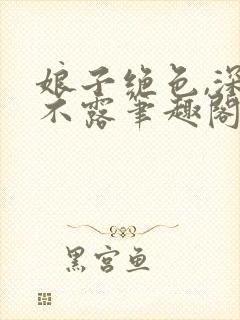 娘子绝色,深
不露笔趣阁
黑宫鱼